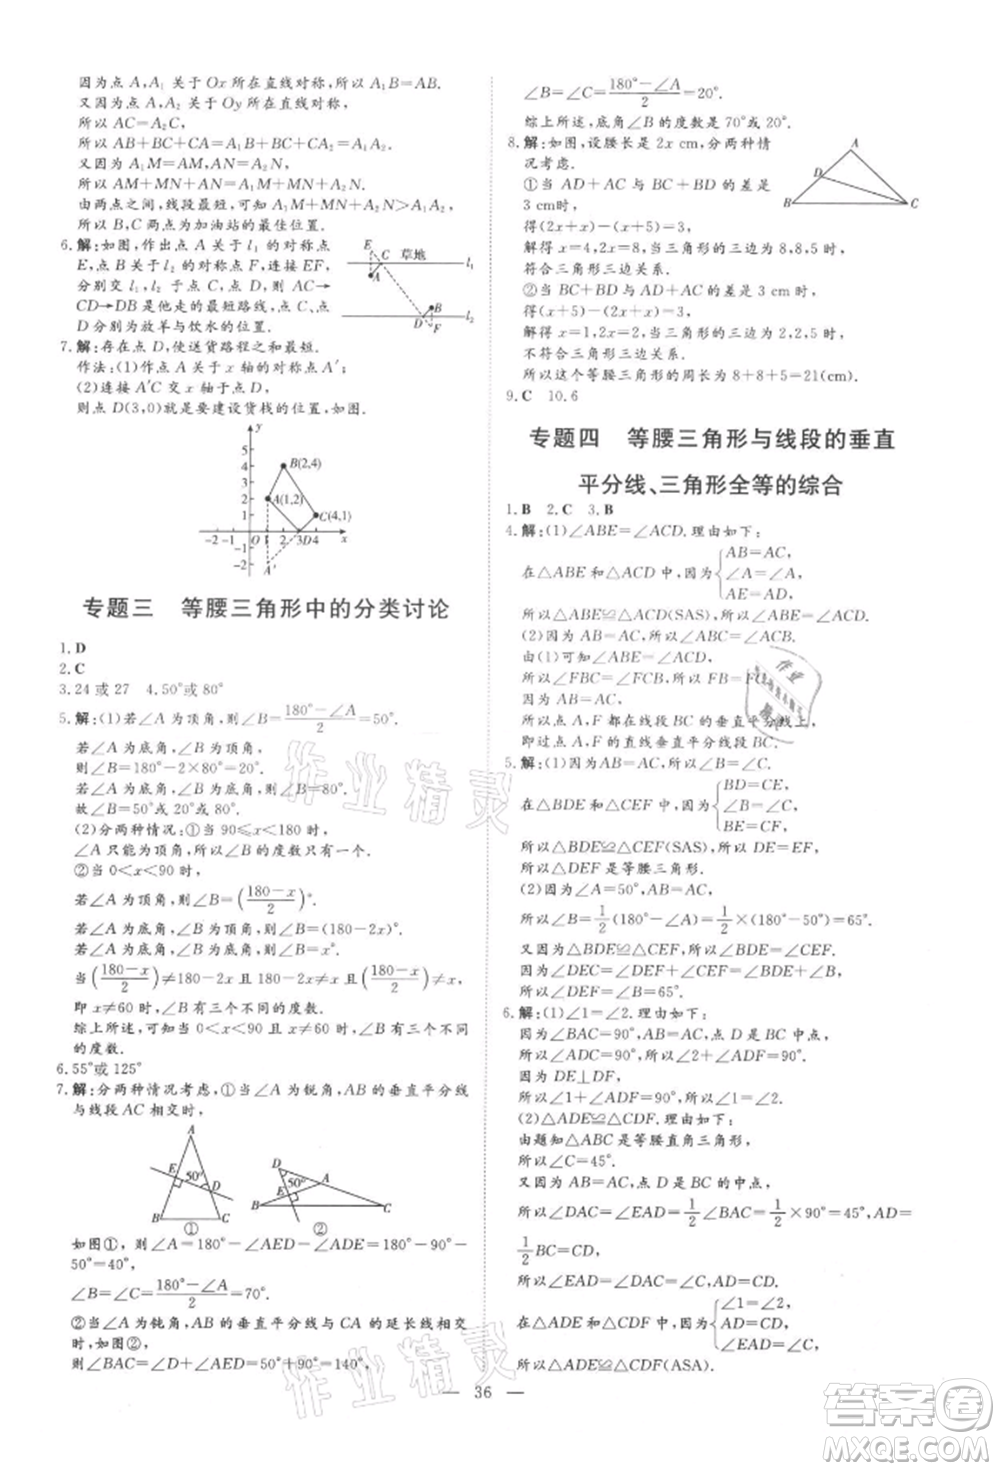 因为点 A,A₁ 关于 Ox 所在直线对称,所以 A₁B=AB.
又因为点 A,A₂ 关于 Oy 所在的直线对称,
所以 AC=A₂C,
所以 AB+BC+CA=A₁B+BC+A₂C.
又因为 A₁M=AM,A₂N=AN,
所以 AM+MN+AN=A₁M+MN+A₂N.
由两点之间,线段最短,可知 A₁M+MN+A₂N>A₁A₂,
所以 B,C 两点为加油站的最佳位置.
6.解:如图,作出点 A 关于 l₁ 的对称点
E,点 B 关于 l₂ 的对称点 F,连接 EF,
分别交 l₁,l₂ 于点 C,点 D,则 AC→
CD→DB 是他走的最短路线,点 C,点
D 分别为放羊与饮水的位置.
E C 草地 l₁
A
B
D F l₂
7.解:存在点 D,使送货路程之和最短.
作法:(1)作点 A 关于 x 轴的对称点 A′;
(2)连接 A′C 交 x 轴于点 D,
则点 D(3,0)就是要建设货栈的位置,如图.
y
5
4
3
2
1
B(2,4)
A(1,2)
C(4,1)
−2 −1 O 1 2 3 4 x
−1
−2
A′
专题三 等腰三角形中的分类讨论
1.D
2.C
3.24 或 27 4.50°或 80°
5.解:(1)若∠A 为顶角,则∠B=(180°−∠A)/2=50°.
若∠A 为底角,∠B 为顶角,
则∠B=180°−2×80°=20°.
若∠A 为底角,∠B 为底角,则∠B=80°.
故∠B=50°或 20°或 80°.
(2)分两种情况:①当 90≤x<180 时,
∠A 只能为顶角,所以∠B 的度数只有一个.
②当 0<x<90 时,
若∠A 为顶角,则∠B=((180−x)/2)°.
若∠A 为底角,∠B 为顶角,则∠B=(180−2x)°.
若∠A 为底角,∠B 为底角,则∠B=x°.
当((180−x)/2)≠180−2x 且 180−2x≠x 且(180−x)/2≠x,
即 x≠60 时,∠B 有三个不同的度数.
综上所述,可知当 0<x<90 且 x≠60 时,∠B 有三个不同
的度数.
6.55°或 125°
7.解:分两种情况考虑,①当∠A 为锐角,AB 的垂直平分线
与线段 AC 相交时,
A
E 50° D
B C
①
D
E 50° A
B C
②
如图①,所以∠A=180°−∠AED−∠ADE=180°−90°−
50°=40°,
∠B=∠C=(180°−∠A)/2=70°.
②当∠A 为钝角,AB 的垂直平分线与 CA 的延长线相交
时,如图②,
所以∠BAC=∠D+∠AED=50°+90°=140°,
∠B=∠C=(180°−∠A)/2=20°.
综上所述,底角∠B 的度数是 70°或 20°.
8.解:如图,设腰长是 2x cm,分两种情
况考虑.
①当 AD+AC 与 BC+BD 的差是
3 cm时,
A
D
B C
得(2x+x)−(x+5)=3,
解得 x=4,2x=8,当三角形的三边为 8,8,5 时,
符合三角形三边关系.
②当 BC+BD 与 AD+AC 的差是 3 cm时,
得(x+5)−(2x+x)=3,
解得 x=1,2x=2,当三角形的三边为 2,2,5 时,
不符合三角形三边关系.
所以这个等腰三角形的周长为 8+8+5=21(cm).
9.C 10.6
专题四 等腰三角形与线段的垂直
平分线、三角形全等的综合
1.B 2.C 3.B
4.解:(1)∠ABE=∠ACD.理由如下:
在△ABE 和△ACD 中,{AB=AC, ∠A=∠A, AE=AD,
所以△ABE≌△ACD(SAS),所以∠ABE=∠ACD.
(2)因为 AB=AC,所以∠ABC=∠ACB.
由(1)可知∠ABE=∠ACD,
所以∠FBC=∠FCB,所以 FB=FC.
因为 AB=AC,
所以点 A,F 都在线段 BC 的垂直平分线上,
即过点 A,F 的直线垂直平分线段 BC.
5.解:(1)因为 AB=AC,所以∠B=∠C,
在△BDE 和△CEF 中,{BD=CE, ∠B=∠C, BE=CF,
所以△BDE≌△CEF(SAS),所以 DE=EF,
所以△DEF 是等腰三角形.
(2)因为∠A=50°,AB=AC,
所以∠B=1/2(180°−∠A)=1/2×(180°−50°)=65°.
又因为△BDE≌△CEF,所以∠BDE=∠CEF.
因为∠DEC=∠B+∠BDE=∠DEF+∠CEF,
所以∠DEF=∠B=65°.
6.解:(1)∠1=∠2.理由如下:
因为∠BAC=90°,AD⊥AC,点 D 是 BC 中点,
所以∠ADC=90°,所以∠2+∠ADF=90°.
因为 DE⊥DF,
所以∠1+∠ADF=90°,所以∠1=∠2.
(2)△ADE≌△CDF.理由如下:
由题知△ABC 是等腰直角三角形,
所以∠C=45°.
又因为 AB=AC,点 D 是 BC 的中点,
所以∠EAD=∠DAC=1/2∠BAC=1/2×90°=45°,AD=
1/2BC=CD.
所以∠EAD=∠DAC=∠C,AD=CD.
在△ADE 和△CDF 中,{∠1=∠2, AD=CD, ∠EAD=∠C,
所以△ADE≌△CDF(ASA).
— 36 —
作业精灵
作业精灵
答案圈
MXQE.COM